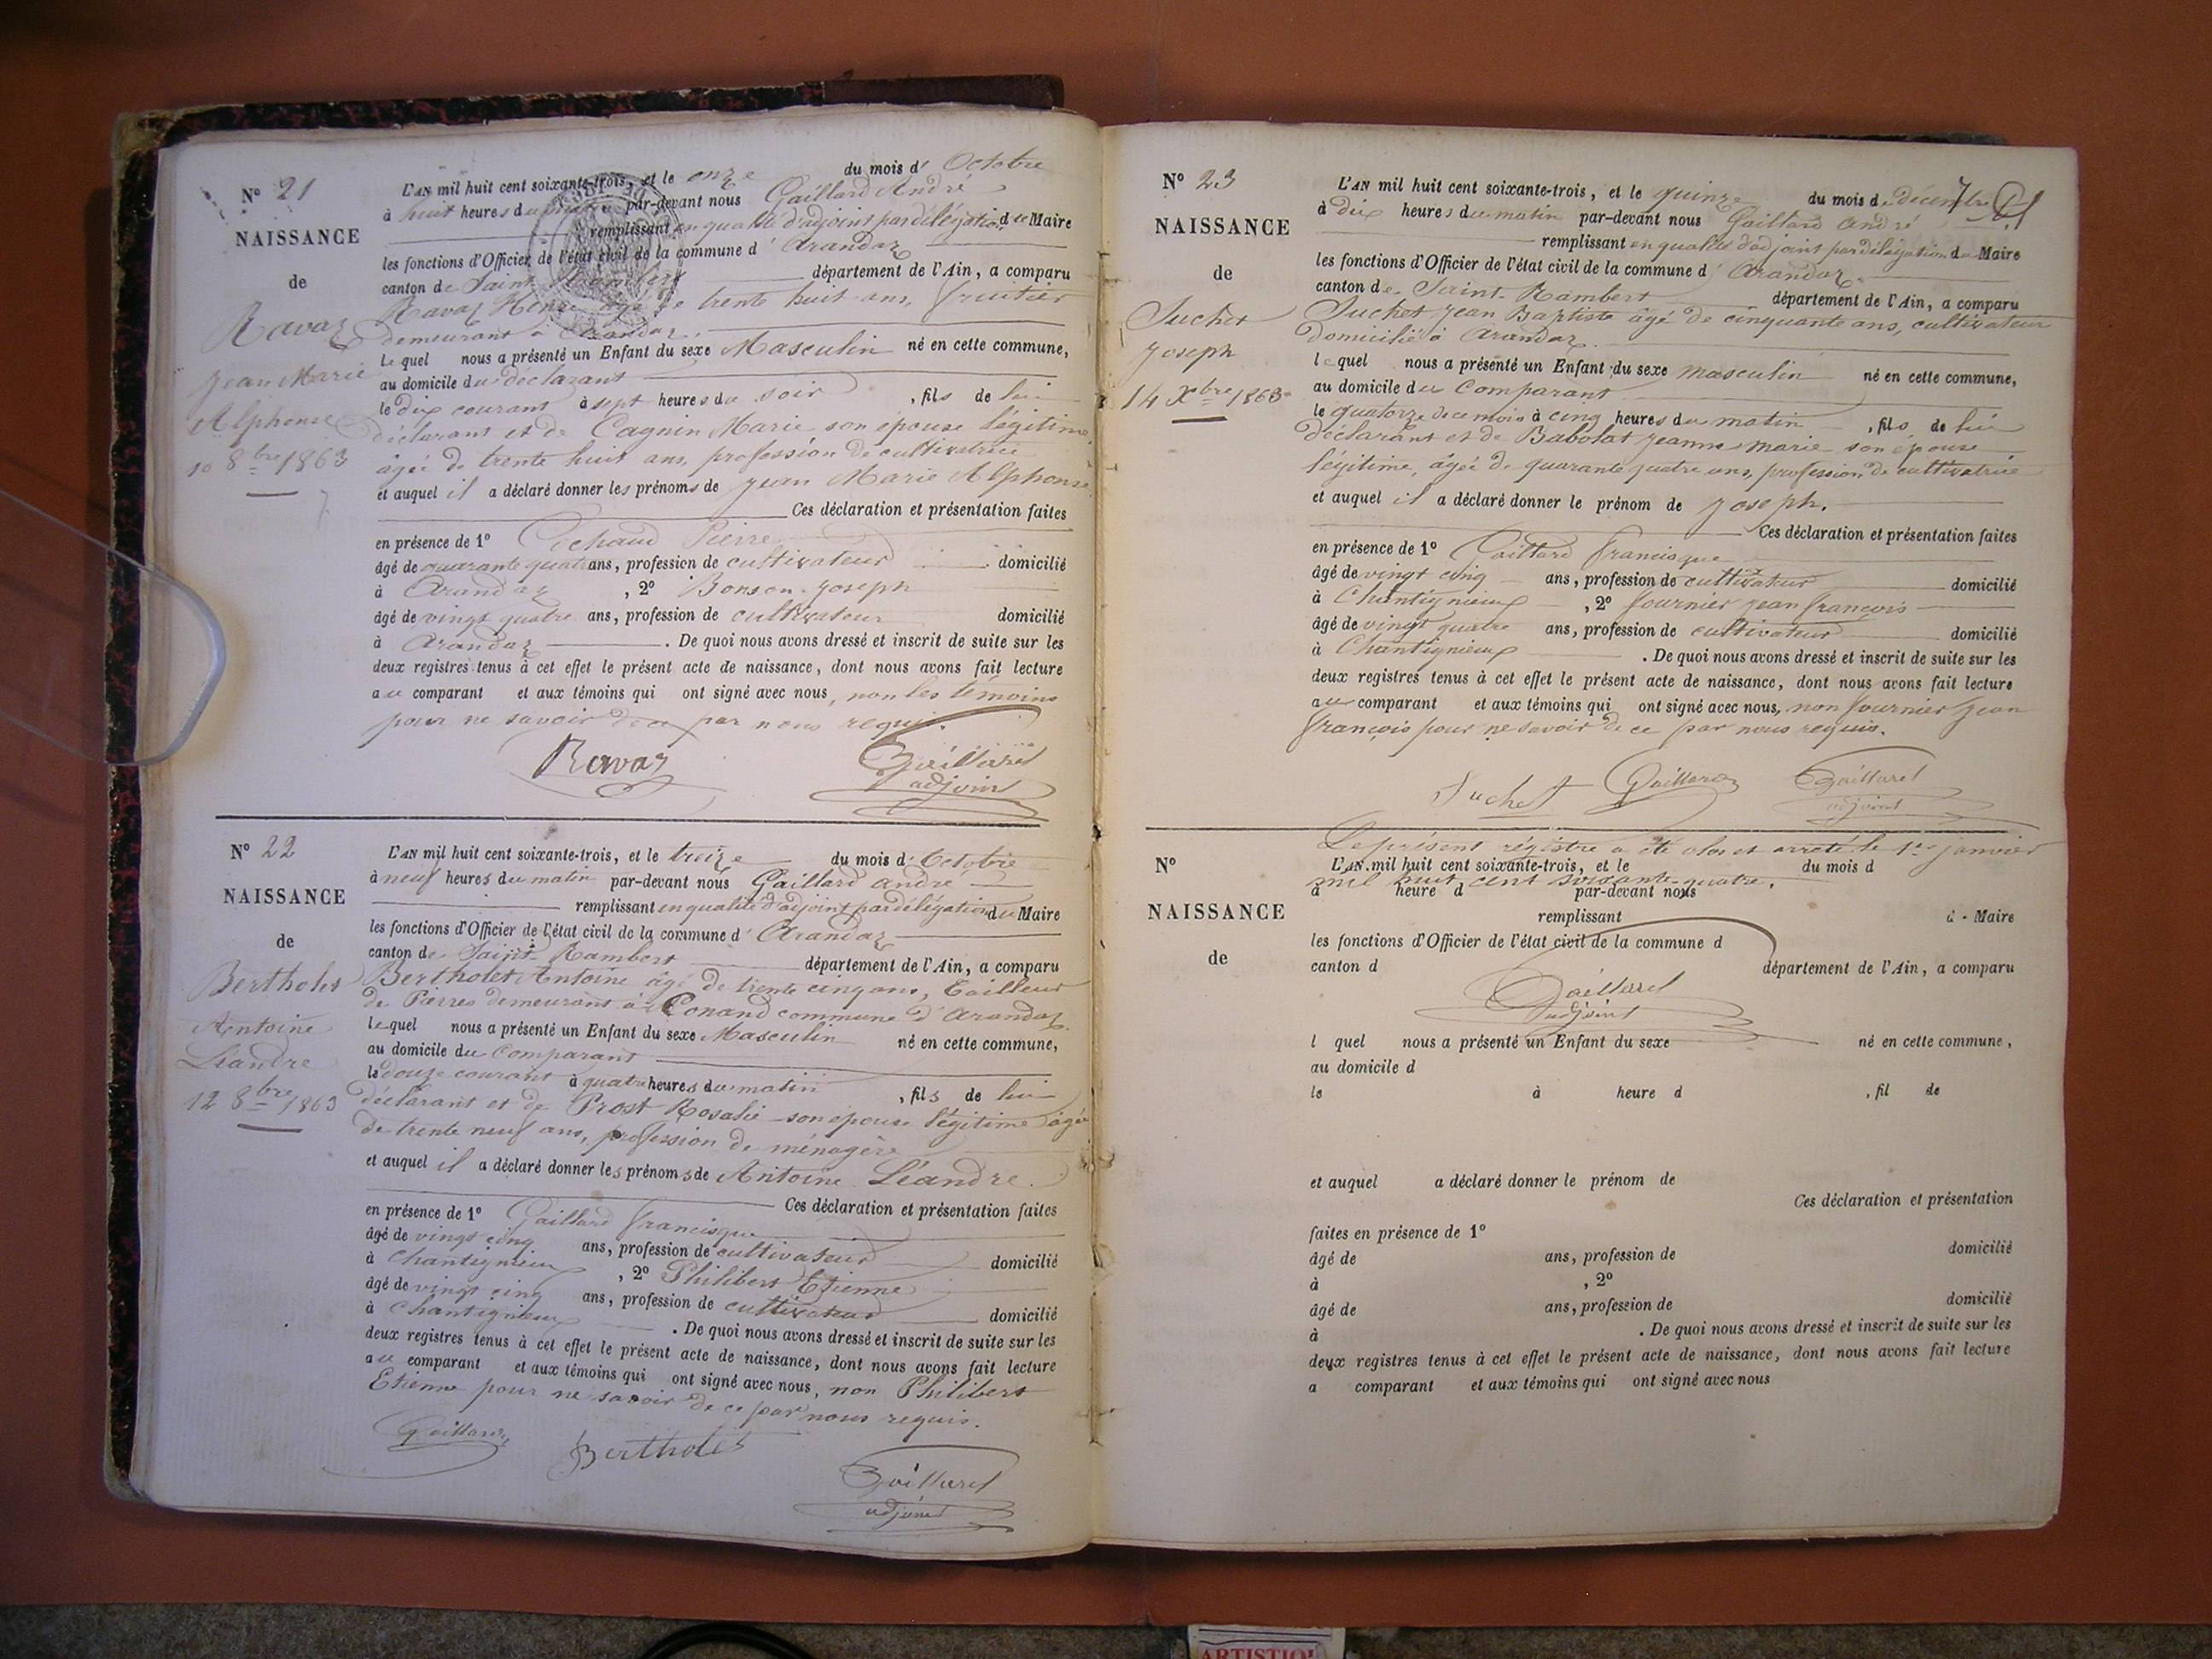 N° 21
NAISSANCE
de
Ravaz
Jean Marie
Alphonse
10 8bre 1863
L'AN mil huit cent soixante-trois, et le onze du mois d' Octobre
à huit heures du matin par-devant nous Gaillard André
remplissant en qualité d'adjoint par délégation du Maire
les fonctions d'Officier de l'état civil de la commune d' Arandaz
canton de Saint Rambert département de l'Ain, a comparu
Ravaz âgé de trente huit ans, fruitier
demeurant à Arandaz
Le quel nous a présenté un Enfant du sexe Masculin né en cette commune,
au domicile du déclarant
le dix courant à sept heures du soir, fils de lui
déclarant et de Cagnin Marie son épouse légitime,
âgée de trente huit ans, profession de cultivatrice
et auquel il a déclaré donner les prénoms de Jean Marie Alphonse
Ces déclaration et présentation faites
en présence de 1° Pierre
âgé de quarante quatre ans, profession de cultivateur domicilié
à Arandaz, 2° Bonson Joseph
âgé de vingt quatre ans, profession de cultivateur domicilié
à Arandaz. De quoi nous avons dressé et inscrit de suite sur les
deux registres tenus à cet effet le présent acte de naissance, dont nous avons fait lecture
au comparant et aux témoins qui ont signé avec nous, non les témoins
pour ne savoir de ce par nous requis.
Ravaz Gaillard
adjoint
N° 22
NAISSANCE
de
Bertholet
Antoine
Léandre
12 8bre 1863
L'AN mil huit cent soixante-trois, et le treize du mois d' Octobre
à neuf heures du matin par-devant nous Gaillard andré
remplissant en qualité d'adjoint par délégation du Maire
les fonctions d'Officier de l'état civil de la commune d' Arandaz
canton de Saint Rambert département de l'Ain, a comparu
Bertholet Antoine âgé de trente cinq ans, Tailleur
de Pierres demeurant à Conand commune d'Arandaz.
le quel nous a présenté un Enfant du sexe Masculin né en cette commune,
au domicile du Comparant
le douze courant à quatre heures du matin, fils de lui
déclarant et de Prost Rosalie son épouse légitime âgée
de trente neuf ans, profession de ménagère
et auquel il a déclaré donner les prénoms de Antoine Léandre.
Ces déclaration et présentation faites
en présence de 1° Gaillard francisque
âgé de vingt cinq ans, profession de cultivateur domicilié
à Chantignieux, 2° Philibert Etienne
âgé de vingt cinq ans, profession de cultivateur domicilié
à Chantignieux. De quoi nous avons dressé et inscrit de suite sur les
deux registres tenus à cet effet le présent acte de naissance, dont nous avons fait lecture
au comparant et aux témoins qui ont signé avec nous, non Philibert
Etienne pour ne savoir de ce par nous requis.
Gaillard Bertholet Gaillard
adjoint
N° 23
NAISSANCE
de
Suchet
Joseph
14 Xbre 1863
7
L'AN mil huit cent soixante-trois, et le quinze du mois de décembre
à dix heures du matin par-devant nous Gaillard André
remplissant en qualité d'adjoint par délégation du Maire
les fonctions d'Officier de l'état civil de la commune d' Arandaz
canton de Saint-Rambert département de l'Ain, a comparu
Suchet Jean Baptiste âgé de cinquante ans, cultivateur
domicilié à Arandaz.
le quel nous a présenté un Enfant du sexe masculin né en cette commune,
au domicile du Comparant
le quatorze de ce mois à cinq heures du matin, fils de lui
déclarant et de Babolat Jeanne marie son épouse
légitime, âgée de quarante quatre ans, profession de cultivatrice
et auquel il a déclaré donner le prénom de Joseph.
Ces déclaration et présentation faites
en présence de 1° Gaillard francisque
âgé de vingt cinq ans, profession de cultivateur domicilié
à Chantignieux, 2° fournier jean françois
âgé de vingt quatre ans, profession de cultivateur domicilié
à Chantignieux. De quoi nous avons dressé et inscrit de suite sur les
deux registres tenus à cet effet le présent acte de naissance, dont nous avons fait lecture
au comparant et aux témoins qui ont signé avec nous, non fournier jean
françois pour ne savoir de ce par nous requis.
Suchet Gaillard Gaillard
adjoint
Le présent régistre a été clos et arreté le 1er janvier
mil huit cent soixante-quatre.
Gaillard
adjoint
N°
NAISSANCE
de
L'AN mil huit cent soixante-trois, et le du mois d
à heure d par-devant nous
remplissant d Maire
les fonctions d'Officier de l'état civil de la commune d
canton d département de l'Ain, a comparu
l quel nous a présenté un Enfant du sexe né en cette commune,
au domicile d
le à heure d, fil de
et auquel a déclaré donner le prénom de
Ces déclaration et présentation
faites en présence de 1°
âgé de ans, profession de domicilié
à, 2°
âgé de ans, profession de domicilié
à. De quoi nous avons dressé et inscrit de suite sur les
deux registres tenus à cet effet le présent acte de naissance, dont nous avons fait lecture
a comparant et aux témoins qui ont signé avec nous